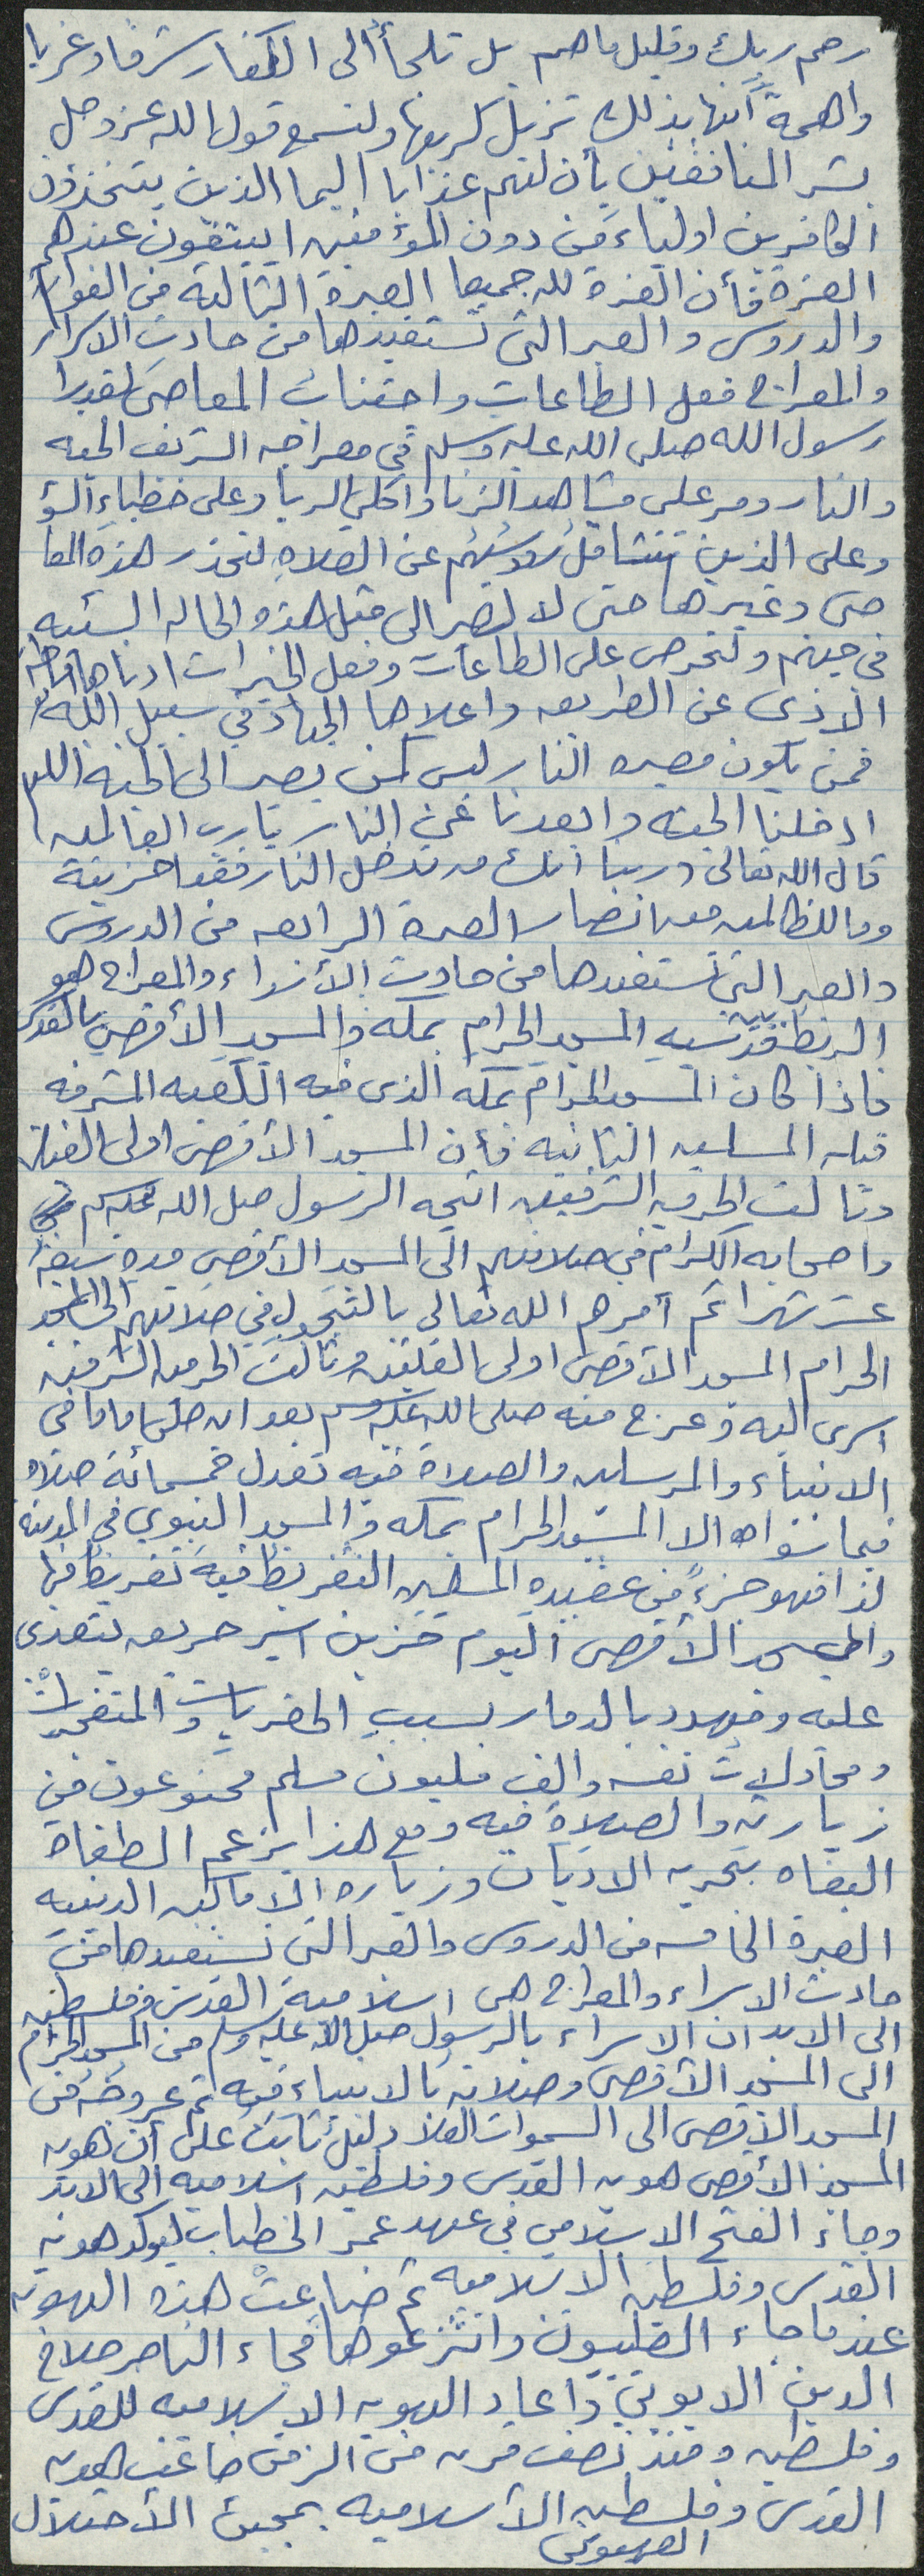 رحم ربك وقليل ما هم بل تلجأ الى الكفار شرقا وغربا
واهمة انها بذلك تزيل كربها ولنسمع قول الله عز وجل
بشر المنافقين بأن لهم عذابا اليما الذين يتخذون
الكافرين اولياء من دون المؤمنين ايبتغون عندهم
العزة فأن العزة لله جميعا العبرة الثالثة من الفوائد
والدروس والعبر التي نستفيدها من حادث الاسراء
والمعراج فعل الطاعات واجتناب المعاصي لقد رأى
رسول الله صلى الله عليه وسلم في معراجه الشريف الجنه
والنار ومر على مشاهد الزنا واكلي الربا وعلى خطباء السؤ
وعلى الذين تتثاقل رؤوسهم عن الصلاة لنحذر هذه المعا
صي وغيرها حتى لا نصير الى مثل هذه الحاله السيئه
في جهنم ولنحرص على الطاعات وفعل الخيرات ادناها اماطة
الاذى عن الطريق واعلاها الجهاد في سبيل الله
فمن يكون مصيره النار ليس كمن يصير الى الجنه اللهم
ادخلنا الجنه وابعدنا عن النار يا رب العالمين
قال الله تعالى ربنا انك من تدخل النار فقد اخزيته
وما للظالمين من انصار العبرة الرابعه من الدروس
والعبر التي نستفيدها من حادث الأسراء والمعراج هو
الربط بين المسجد الحرام بمكه والمسجد الأقصى بالقدس
فاذا كان المسجد الحرام بمكه الذي فيه الكعبه المشرفه
قبله المسلمين الثانيه فأن المسجد الأقصى اولى القبلتين
وثالث الحرمين الشرفين اتجه الرسول صلى الله عليه وسلم
واصحابه الكرام في صلاتهم الى المسجد الأقصى مده سبعة
عشر شهرا ثم أمرهم الله تعالى بالتحول في صلاتهم الى المسجد
الحرام المسجد الأقصى اولى القبلتين وثالث الحرمين الشرفين
اسري اليه وعرج منه صلى الله عليه وسلم بعد ان صلى اماما في
الانبياء والمرسلين والصلاة فيه تعدل خمسمائة صلاة
فيما سواه الا المسجد الحرام بمكه والمسجد النبوي في المدينه
لذا فهو جزء من عقيده المسلمين التفريط فيه تفريط فيها
والمسجد الأقصى اليوم حزين اسير جريح يتعدى
عليه ومهدد بالدمار بسبب الحفريات والمتفجرات
ومحاولات نفسه والف مليون مسلم ممنوعون من
زيارته والصلاة فيه ومع هذا يزعم الطغاة
البغاه بحريه الاديان وزياره الاماكن الدينيه
العبرة الخامسه من الدروس والعبر التي نستفيدها من
حادث الاسراء والمعراج هي اسلامية القدس وفلسطين
الى الابد ان الاسراء بالرسول صلى الله عليه وسلم من المسجد الحرام
الى المسجد الأقصى وصلاته بالانبياء فيه ثم عروجه من
المسجد الاقصى الى السموات العلا دليل ثابت على أن هويه
المسجد الأقصى هويه القدس وفلسطين اسلاميه الى الابد
وجاء الفتح الاسلامي في عهد عمر الخطاب ليوكد هويه
القدس وفلسطين الاسلاميه ثم ضاعت هذه الهويه
عندما جاء الصلبيون وانتزعوها فجاء الناصر صلاح
الدين الايوبي واعاد الهويه الاسلاميه للقدس
وفلسطين ومنذ نصف قرن من الزمن ضاعت هويه
القدس وفلسطين الأسلاميه بمجيئ الأحتلال
الصهيوني